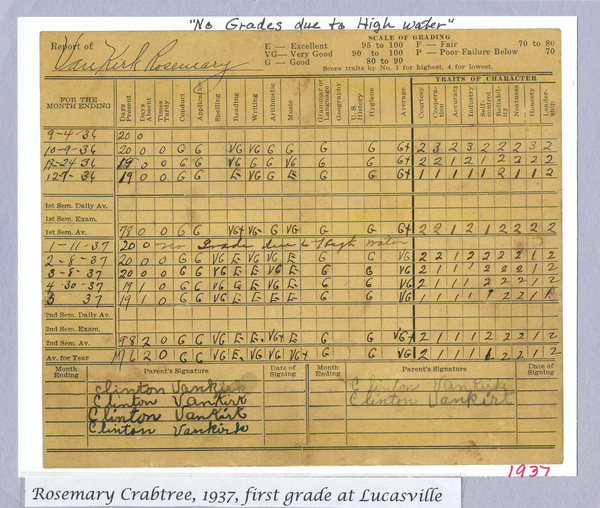 "No Grades due to High water"
Report of VanKirk Rosemary
SCALE OF GRADING
E — Excellent 95 to 100 F — Fair 70 to 80
VG— Very Good 90 to 95 P — Poor Failure Below 70
G — Good 80 to 90
Score traits by No. 1 for highest, 4 for lowest.
TRAITS OF CHARACTER
FOR THE MONTH ENDING Days Present Days Absent Times Tardy Conduct Application Spelling Reading Writing Arithmetic Music Grammar or Language Geography U. S. History Hygiene Average Courtesy Cooperation Accuracy Industry Self-control Reliability Neatness Honesty Leadership
9-4-36 20 0
10-9-36 20 0 0 G G VG VG G G G G G+ 2 3 2 3 2 2 2 3 2
19 0 0 G G VG G G VG G G G+ 2 2 1 2 1 2 2 2 2
19 0 0 G G E VG G E G G G+
1st Sem. Daily Av.
1st Sem. Exam.
1st Sem. Av. 78 0 0 G G VG+ VG- G VG G G G+ 2 2 1 2 1 2 2 2 2
1-11-37 20 0 no Grade due to High water
2-8-37 20 0 0 G G VG E VG VG E G G VG 2 2 1 2 2 2 2 1 2
3-8-37 20 0 0 G G VG E E VG E G G VG 2 1 1 2 2 2 2 1 2
4-30-37 19 1 0 G G VG E VG E G G VG
5 37 19 1 0 G G VG E E E E G G VG
2nd Sem. Daily Av.
2nd Sem. Exam.
2nd Sem. Av. 98 2 0 G G VG E E VG+ E G G VG+ 2 1 1 1 2 2 2 1 2
Av. for Year 176 2 0 G G VG E VG VG VG+ G G VG
Month Ending Parent's Signature Date of Signing Month Ending Parent's Signature Date of Signing
Clinton Vankirk Clinton Vankirk
Clinton Vankirk Clinton Vankirk
Clinton Vankirk
Clinton Vankirk
1937
Rosemary Crabtree, 1937, first grade at Lucasville